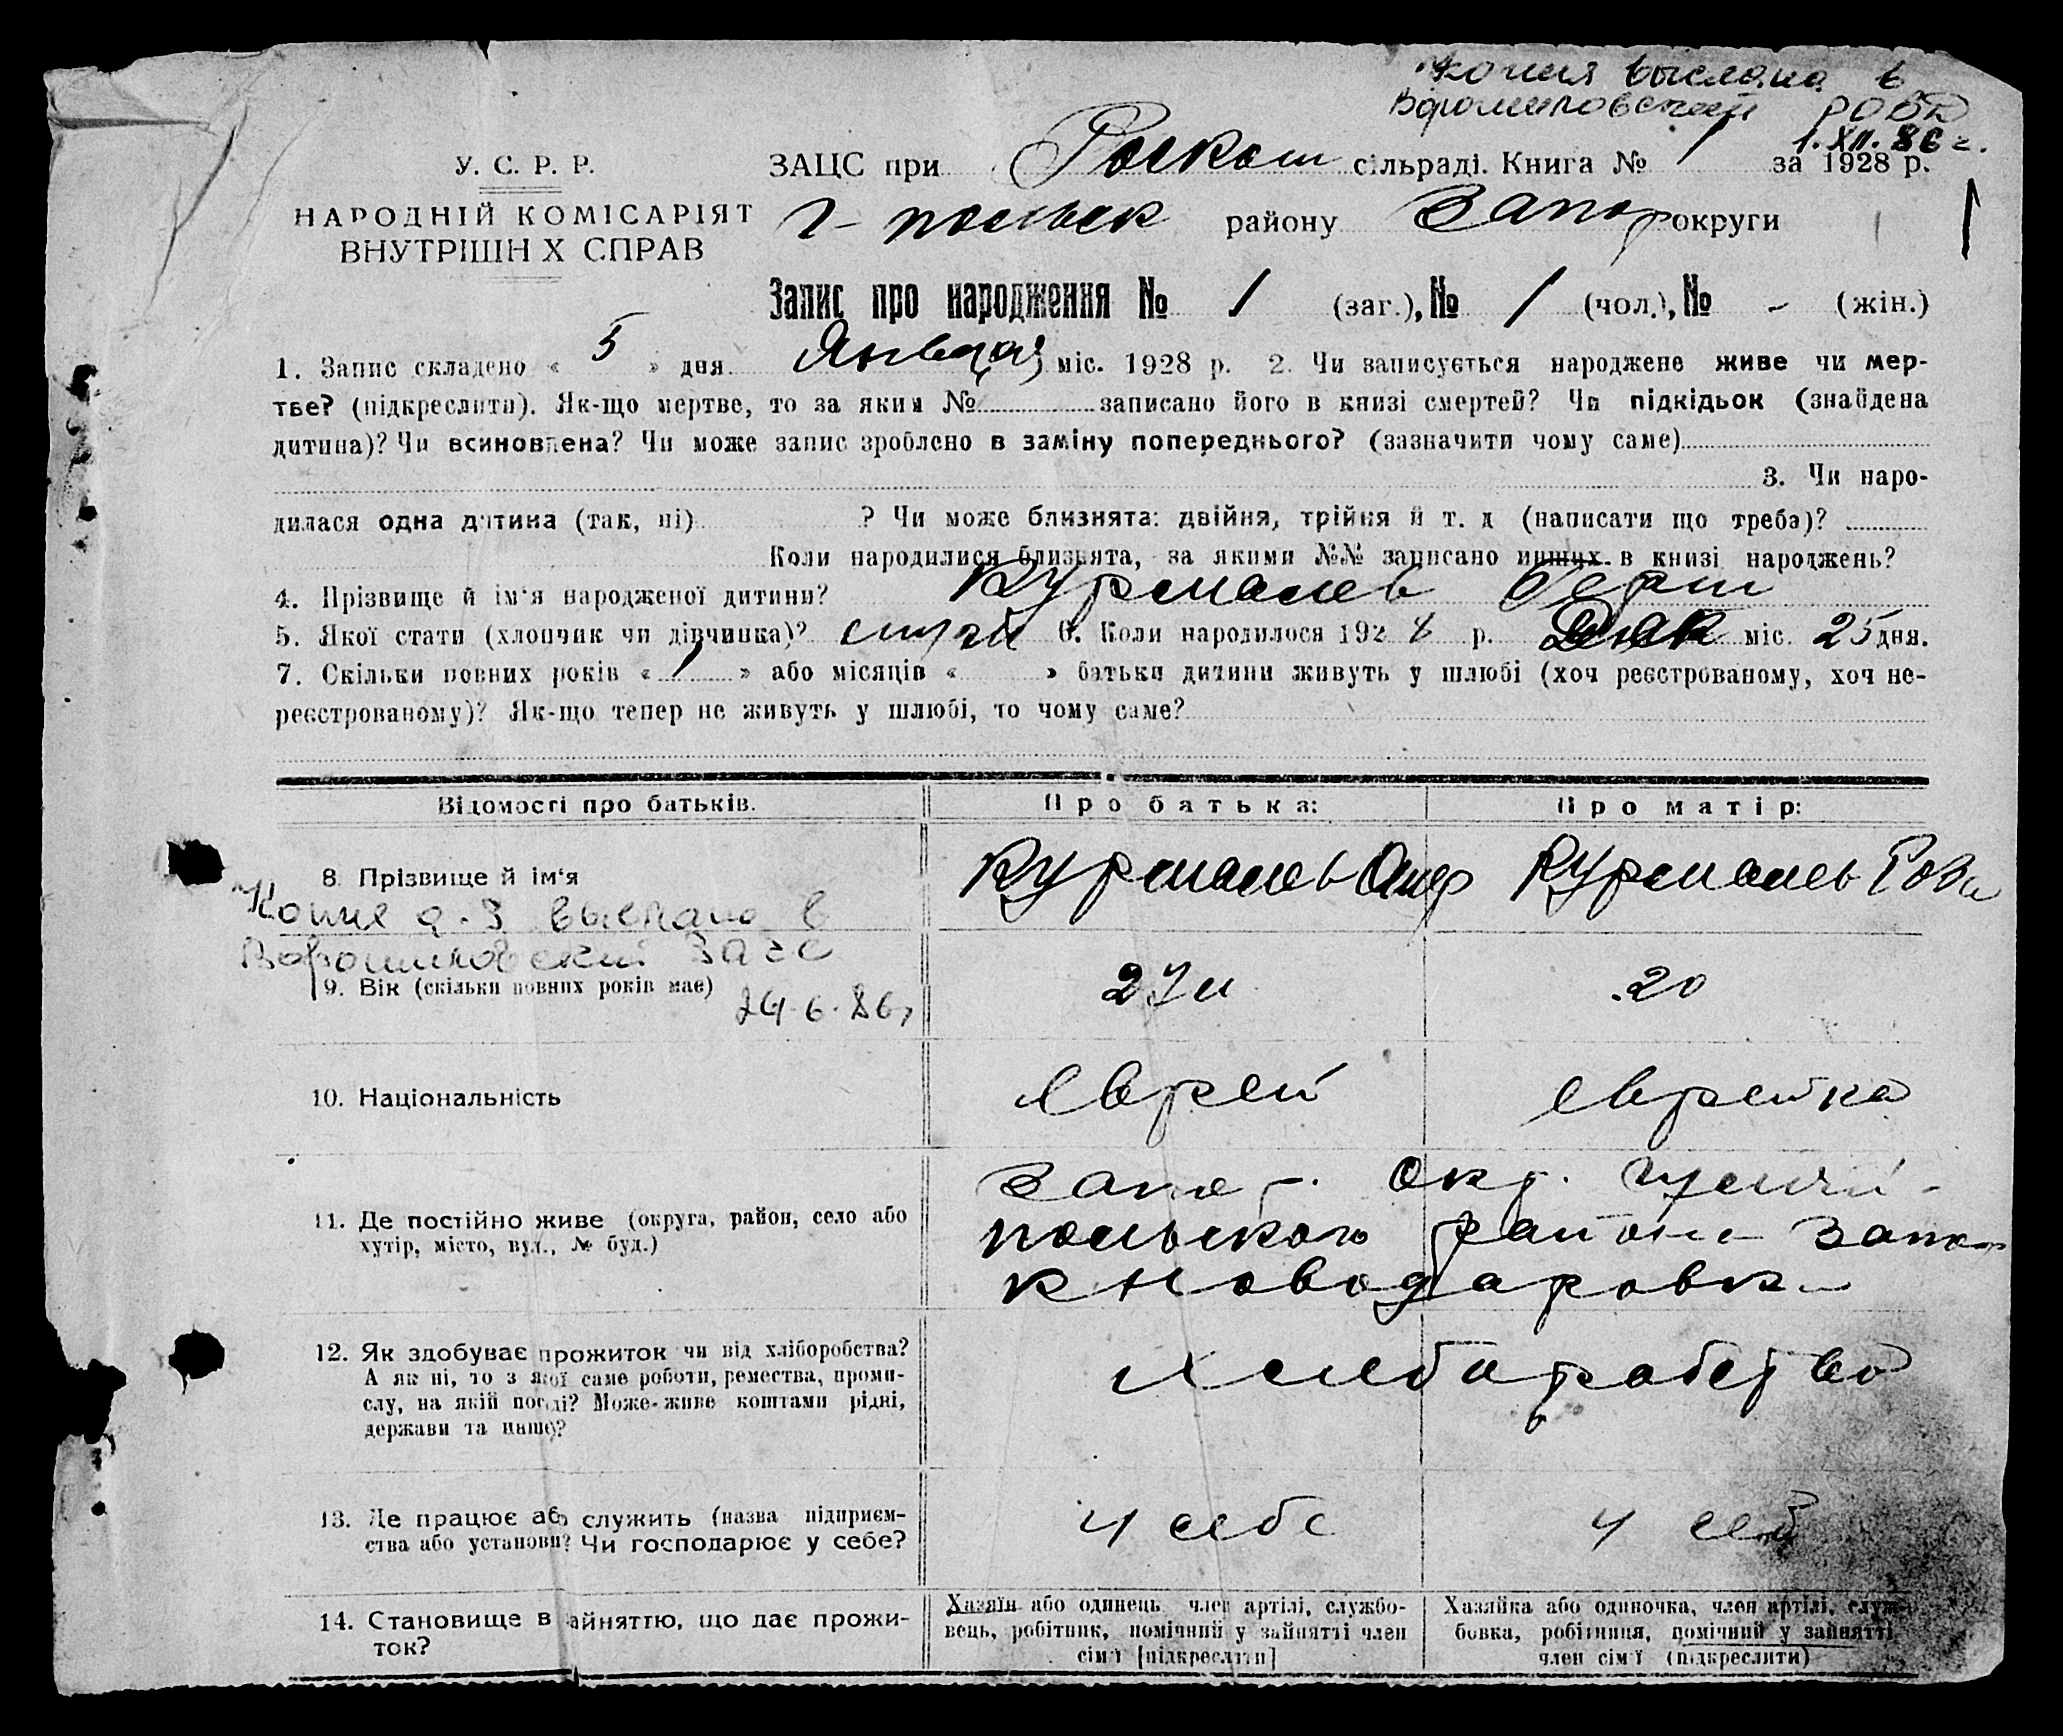 копия выслана в
Ворошиловский РОВД
1.XII.86 г.
У. С. Р. Р.
НАРОДНІЙ КОМІСАРІЯТ
ВНУТРІШН Х СПРАВ
ЗАЦС при Роскош сільраді. Книга № 1 за 1928 р.
Г-польск району Запор округи
Запис про народження № 1 (заг.), № 1 (чол.), № - (жін.)
1. Запис складено « 5 » дня Января міс. 1928 р. 2. Чи записується народжене живе чи мер-
тве? (підкреслити). Як-що мертве, то за яким № записано його в книзі смертей? Чи підкідьок (знайдена
дитина)? Чи всиновлена? Чи може запис зроблено в заміну попереднього? (зазначити чому саме)
3. Чи наро-
дилася одна дитина (так, ні) ? Чи може близнята: двійня, трійня й т. д (написати що треба)?
Коли народилися близнята, за якими №№ записано инших в книзі народжень?
4. Прізвище й ім'я народженої дитини? Курсмалев Герш
5. Якої стати (хлопчик чи дівчинка)? 6. Коли народилося 192 8 р. Дек міс. 25 дня.
7. Скільки повних років « 1 » або місяців « » батьки дитини живуть у шлюбі (хоч реєстрованому, хоч не-
реєстрованому)? Як-що тепер не живуть у шлюбі, то чому саме?
Відомості про батьків. Про батька: Про матір:
8. Прізвище й ім'я
Копия выслана в
Ворошиловский Загс
24.6.86г
9. Вік (скільки повних років має) 27 20
10. Національність Еврей еврейка
11. Де постійно живе (округа, район, село або
хутір, місто, вул., № буд.)
Запор. окр. Гуляй-
польского района
к Новодаровка
12. Як здобуває прожиток чи від хліборобства?
А як ні, то з якої саме роботи, ремества, проми-
слу, на якій посаді? Може-живе коштами рідні,
держави та инше?
13. Де працює або служить (назва підприєм-
ства або установи? Чи господарює у себе?
у себе у себе
14. Становище в айняттю, що дає прожи-
ток?
Хазяїн або одинець, член артілі, службо-
вець, робітник, помічний у зайнятті член
сім'ї [підкреслити]
Хазяйка або одиночка, член артілі, служ-
бовка, робітниця, помічний у зайнятті
член сім'ї (підкреслити)